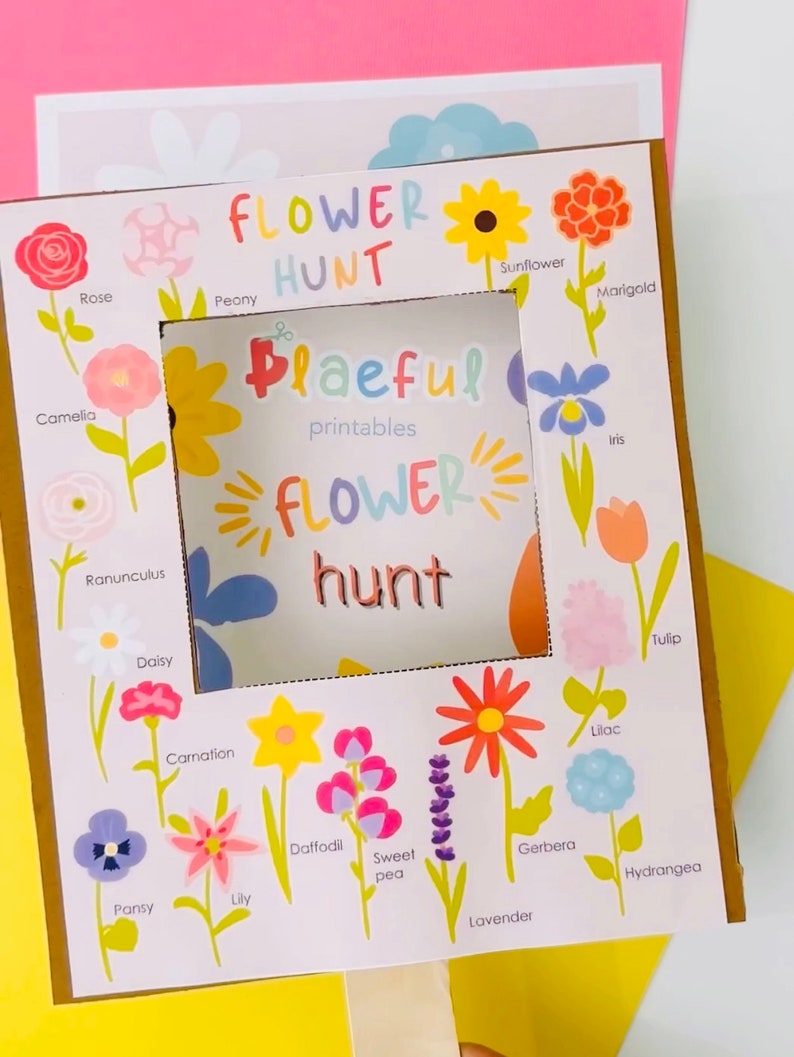 FLOWER
HUNT
Rose
Peony
Sunflower
Marigold
Camelia
Iris
Ranunculus
Tulip
Daisy
Lilac
Carnation
Daffodil
Sweet
pea
Gerbera
Hydrangea
Pansy
Lily
Lavender
Plaeful
printables
FLOWER
hunt